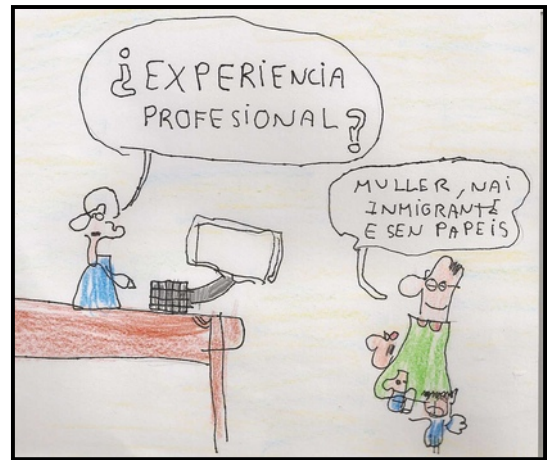 ¿EXPERIENCIA
PROFESIONAL?
MULLER, NAI
INMIGRANTE
E SEN PAPEIS